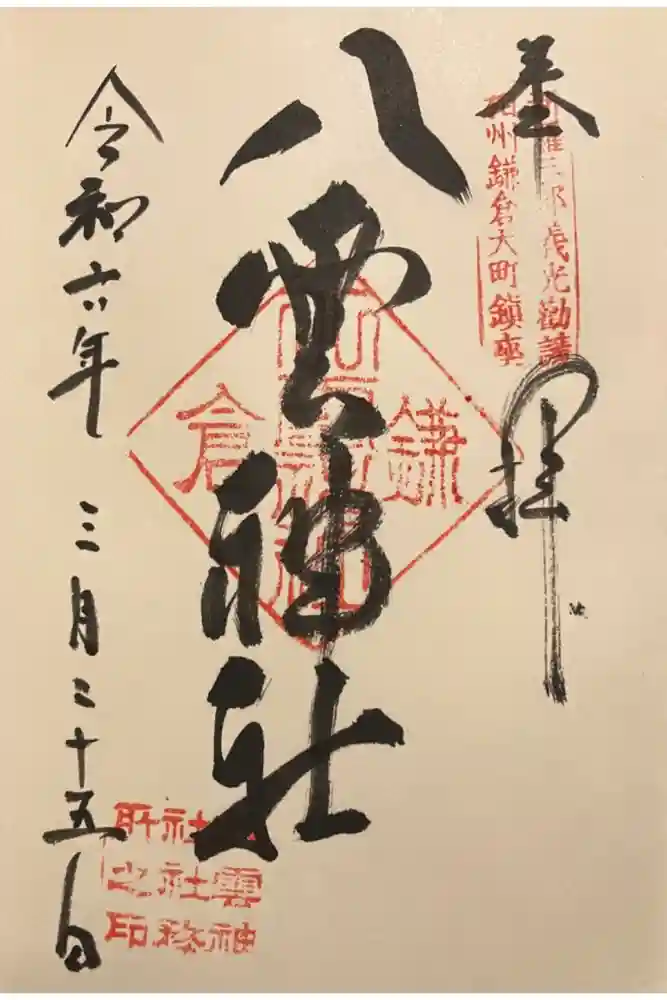 奉拝
新羅三郎義光勧請
相州鎌倉大町鎮座
八雲神社
鎌倉
八雲神社社務所之印
令和六年三月二十五日